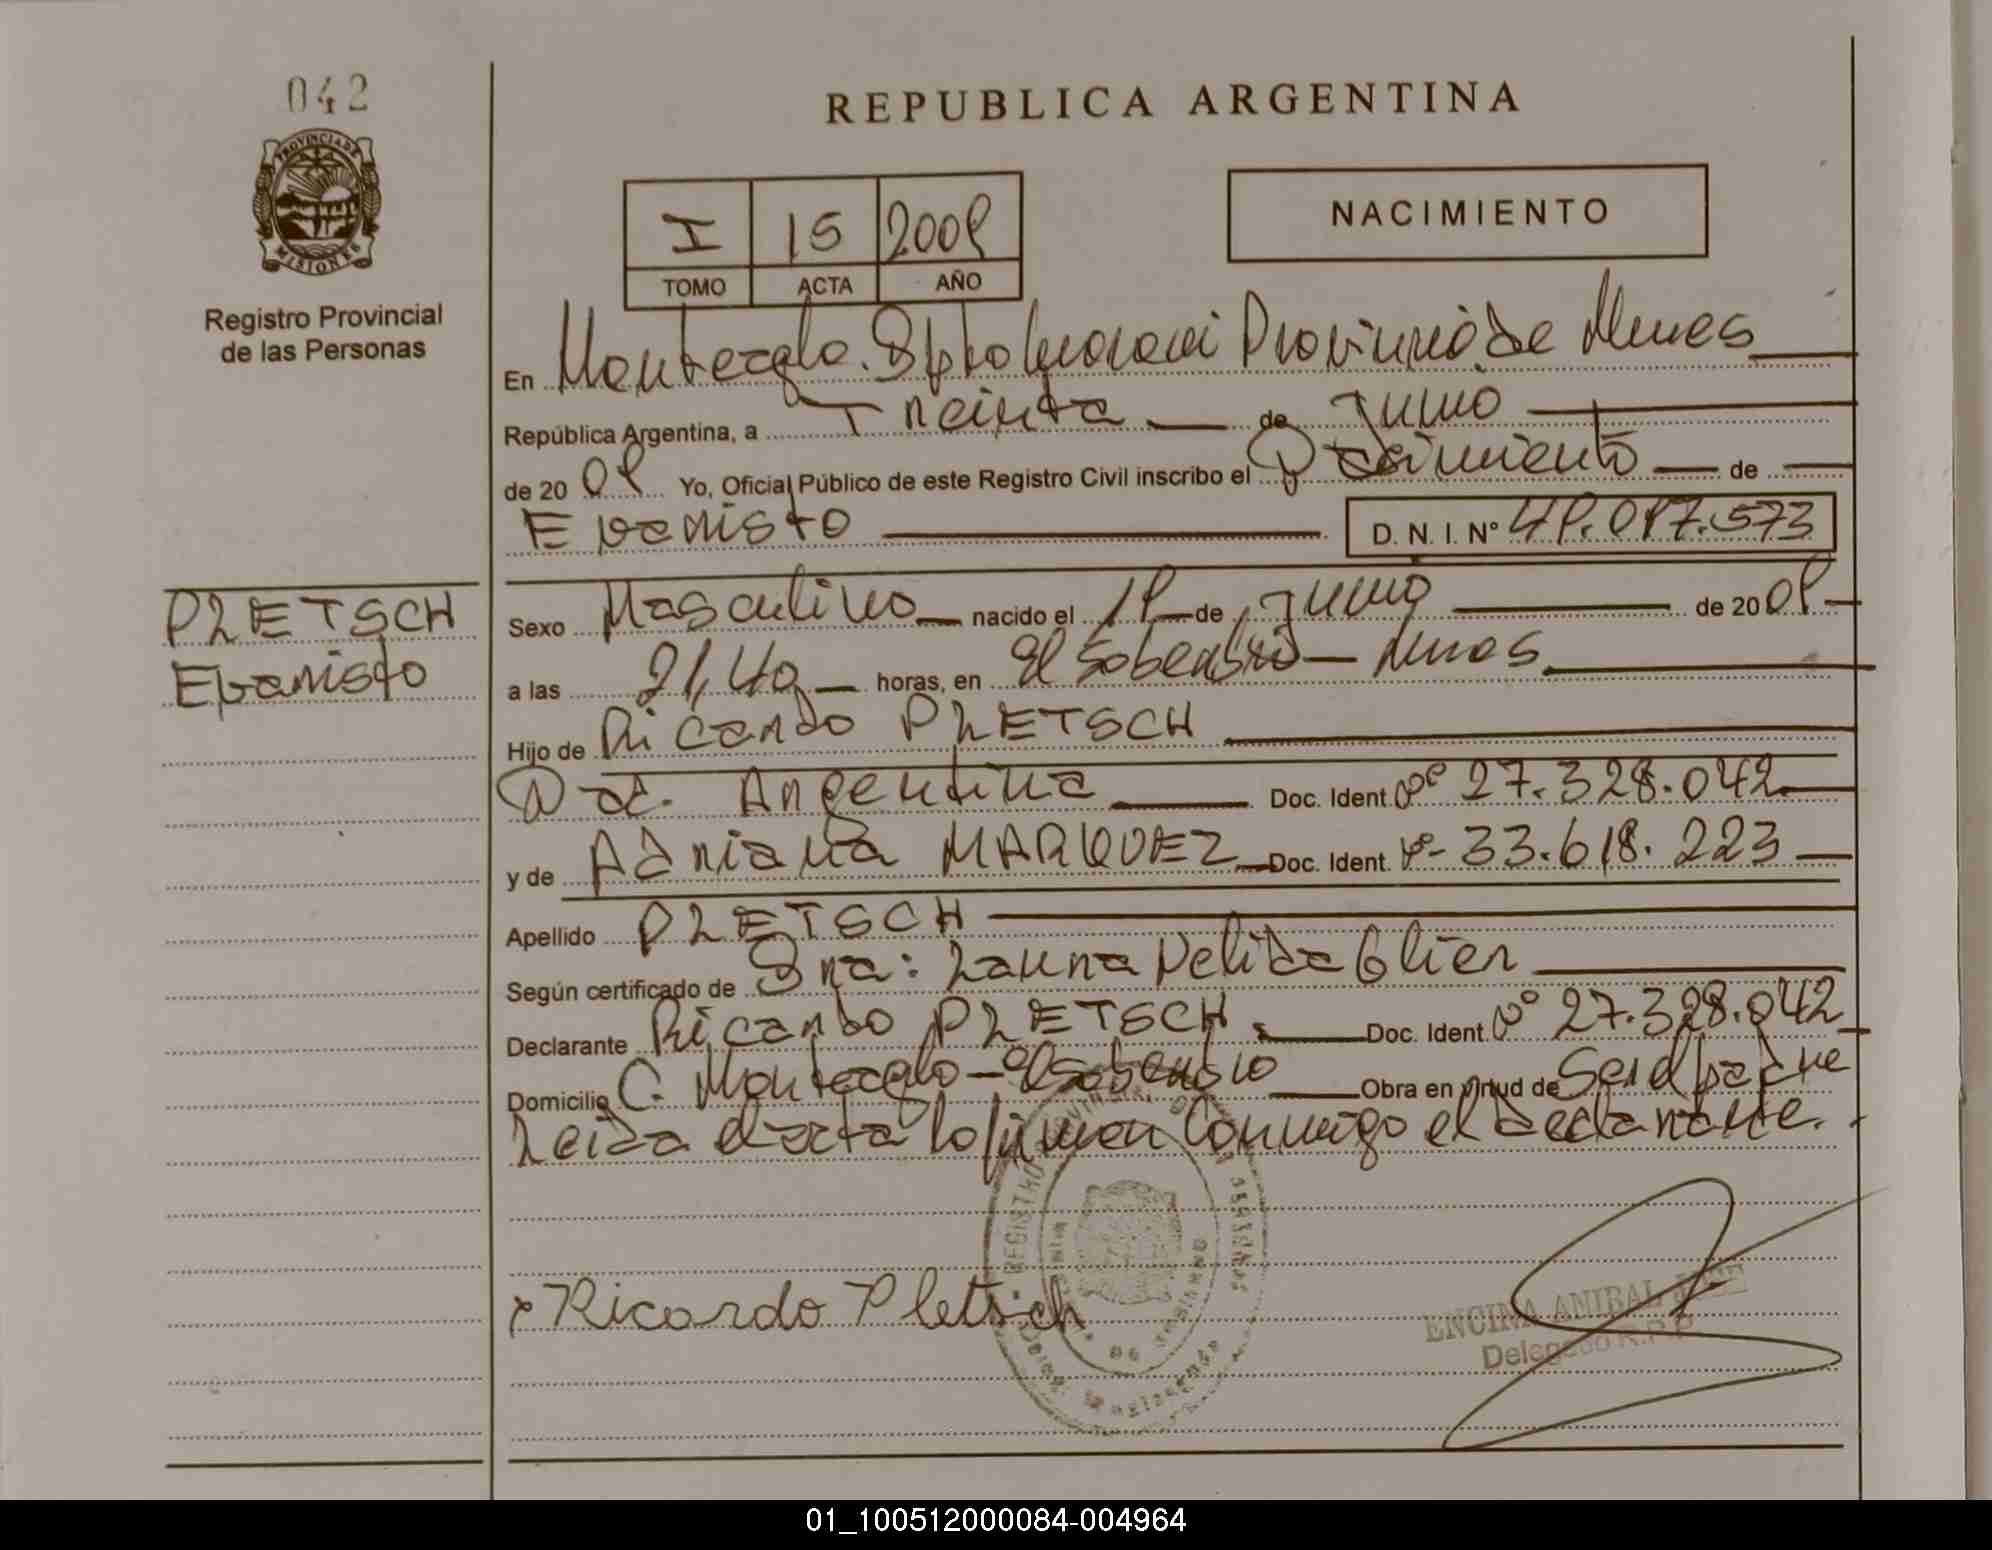 042
REPUBLICA ARGENTINA
PROVINCIA DE MISIONES
Registro Provincial
de las Personas
I 15
TOMO ACTA AÑO
NACIMIENTO
En Montecarlo. Dpto Provincia de Mnes
República Argentina, a Treinta de Junio
de 20 Yo, Oficial Público de este Registro Civil inscribo el Nacimiento de
Evaristo D. N. I. Nº
PLETSCH
Evaristo
Sexo Masculino nacido el de Junio de 20
a las 21,40 horas, en El Soberbio - Mnes
Hijo de Ricardo PLETSCH
Nac. Argentina Doc. Ident. Nº 27.328.042
y de Adriana MARQUEZ Doc. Ident. Nº 33.618.223
Apellido PLETSCH
Según certificado de Sra: Laura Nelida Glier
Declarante Ricardo PLETSCH Doc. Ident. Nº 27.328.042
Domicilio C. Montecarlo - El Soberbio Obra en virtud de Ser el padre
Leida el acta la firman Conmigo el declarante.
x Ricardo Pletsch
ENCINA ANIBAL
Delegado R.P.P
01_100512000084-004964